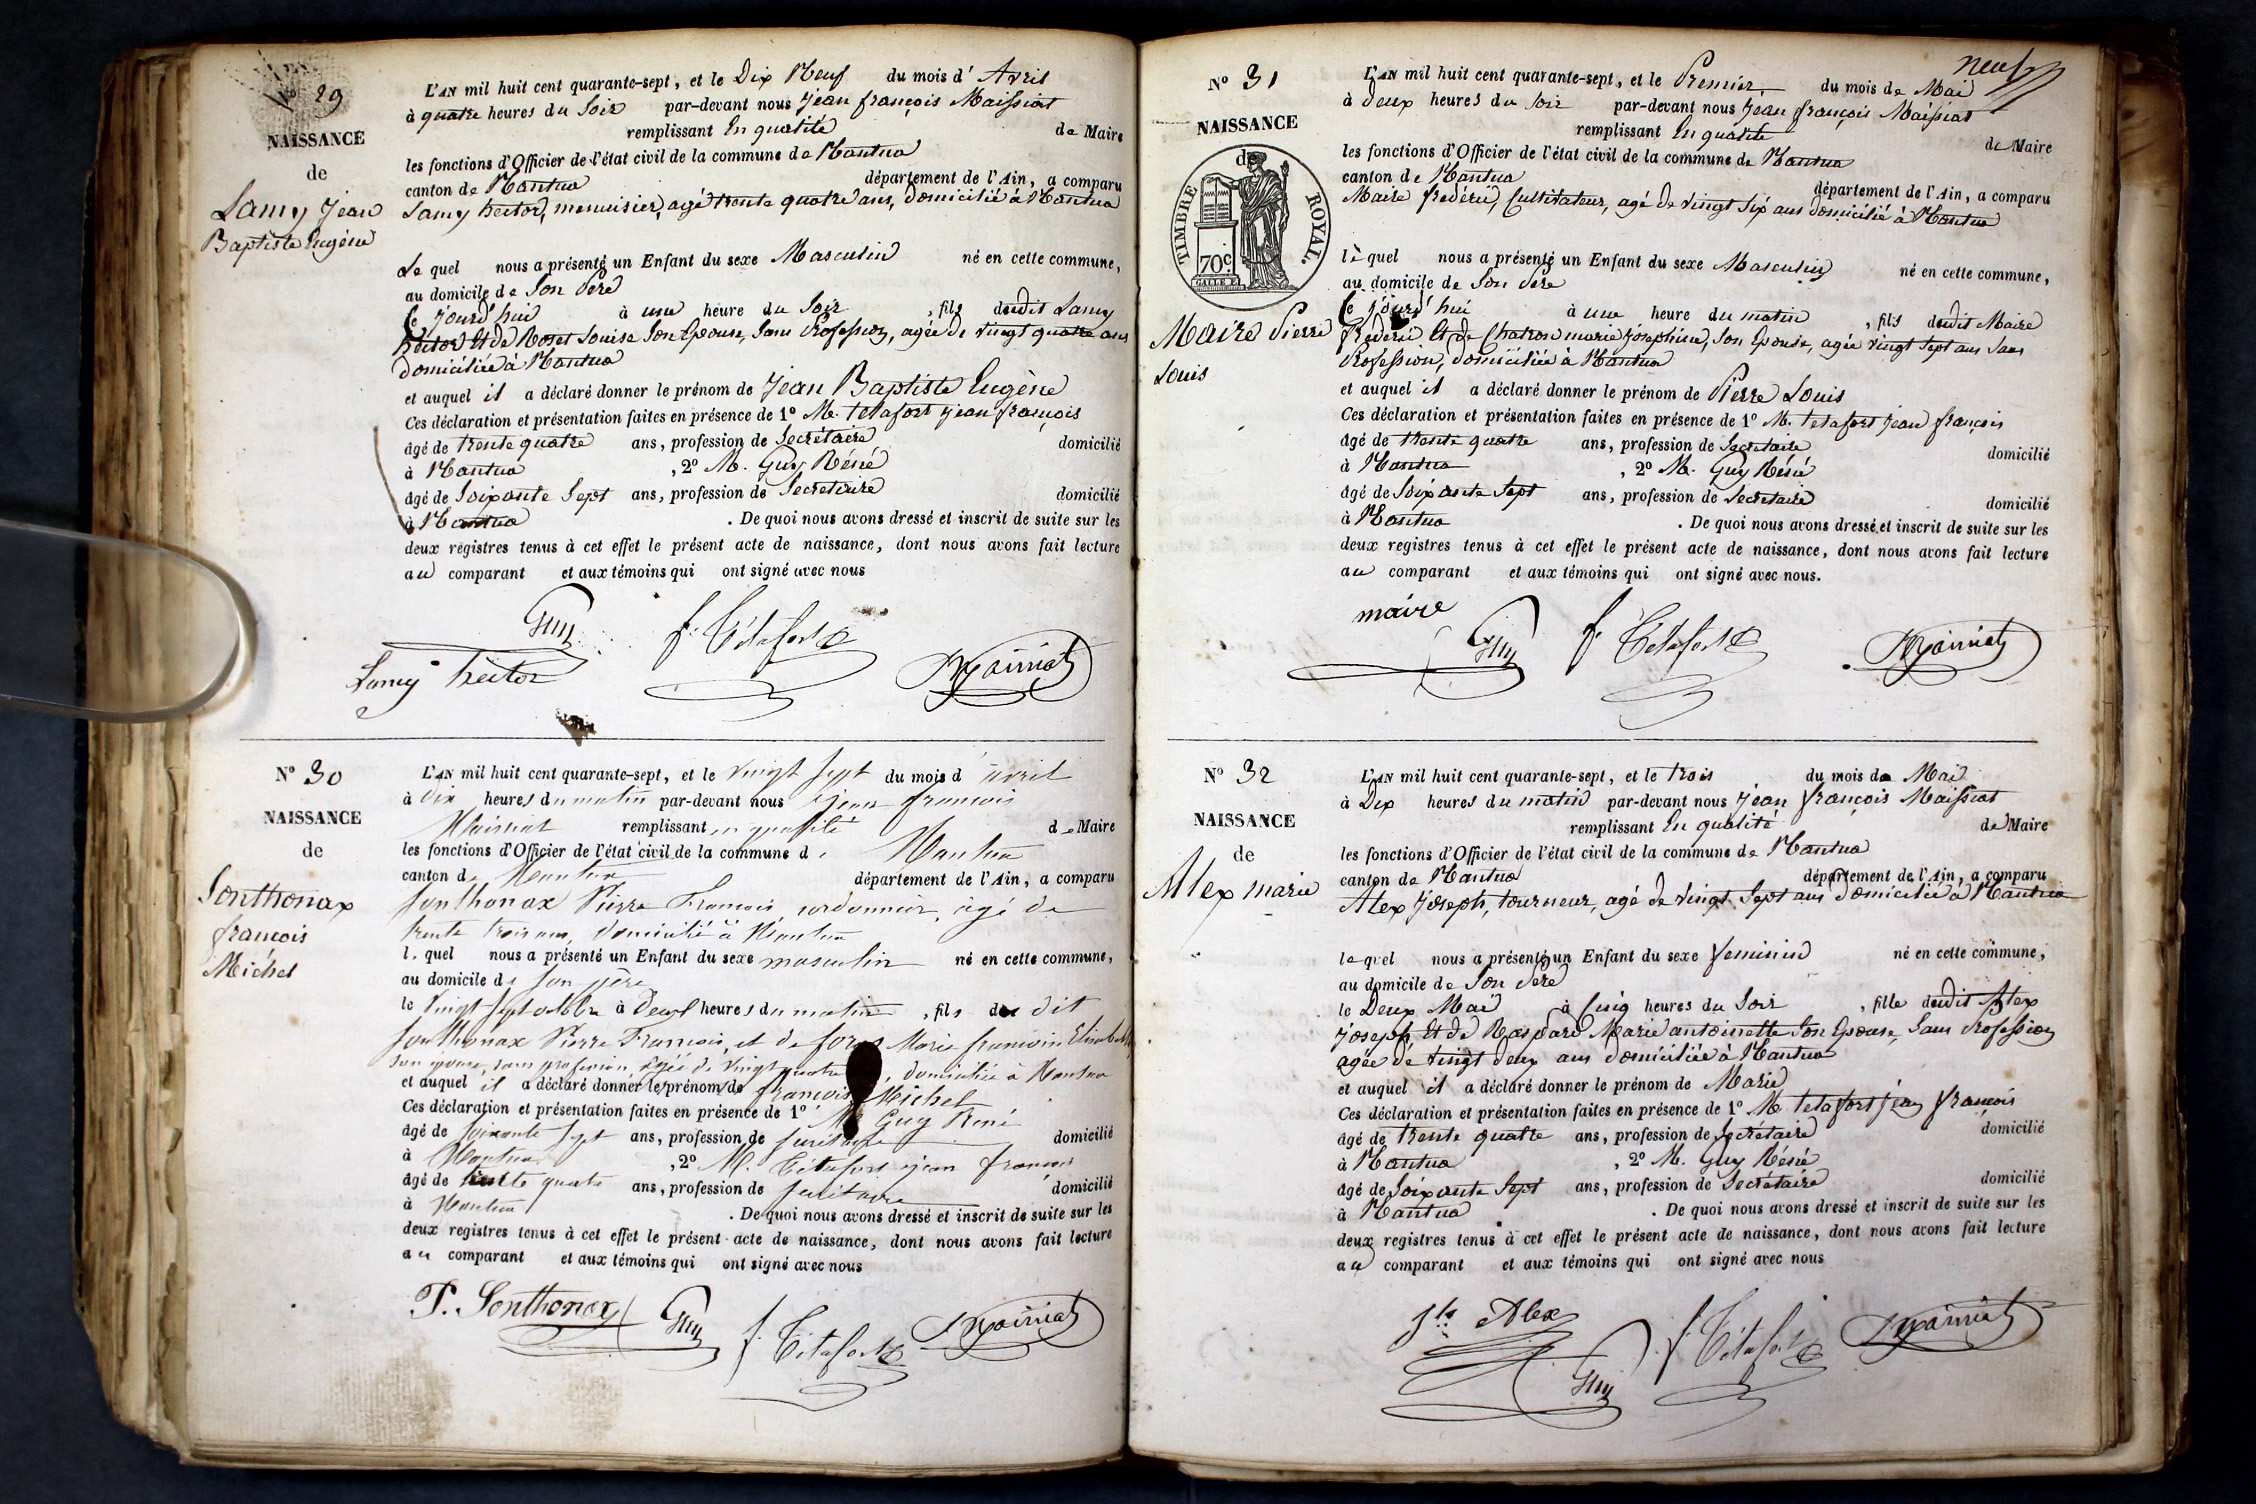 N° 29
NAISSANCE
de
Lamy Jean
Baptiste Eugène
L'AN mil huit cent quarante-sept, et le Dix Neuf du mois d' Avril
à quatre heures du Soir par-devant nous Jean françois Maissiat
remplissant En qualité de Maire
les fonctions d'Officier de l'état civil de la commune de Nantua
canton de Nantua département de l'Ain, a comparu
Lamy hector, menuisier, agé trente quatre ans, domicilié à Nantua
Le quel nous a présenté un Enfant du sexe Masculin né en cette commune,
au domicile de Son Père
Ce jourd'hui à une heure du Soir, fils dudit Lamy
hector Et de Rose Louise Son Epouse, Sans Profession, agée de vingt quatre ans
domiciliée à Nantua
et auquel il a déclaré donner le prénom de Jean Baptiste Eugène
Ces déclaration et présentation faites en présence de 1° M. tétafort jean françois
âgé de trente quatre ans, profession de Secrétaire domicilié
à Nantua, 2° M. Guy Réné
âgé de Soixante Sept ans, profession de Secrétaire domicilié
à Nantua. De quoi nous avons dressé et inscrit de suite sur les
deux registres tenus à cet effet le présent acte de naissance, dont nous avons fait lecture
au comparant et aux témoins qui ont signé avec nous
Guy f. Tétafort
Lamy hector Maissiat
N° 30
NAISSANCE
de
Sonthonax
françois
Michel
L'AN mil huit cent quarante-sept, et le vingt sept du mois d'avril
à dix heures du matin par-devant nous jean françois
Maissiat remplissant en qualité de Maire
les fonctions d'Officier de l'état civil de la commune de Nantua
canton de Nantua département de l'Ain, a comparu
Sonthonax Pierre François, cordonnier, âgé de
trente trois ans, domicilié à Nantua
le quel nous a présenté un Enfant du sexe masculin né en cette commune,
au domicile de son père
le vingt sept à heures du matin, fils du dit
Sonthonax Pierre François, et de Marie françoise
son épouse, sans profession, âgée de vingt quatre, domiciliée à Nantua
et auquel il a déclaré donner le prénom de françois Michel
Ces déclaration et présentation faites en présence de 1° M. Guy René
âgé de soixante sept ans, profession de secrétaire domicilié
à Nantua, 2° M. Tétafort jean françois
âgé de trente quatre ans, profession de secrétaire domicilié
à Nantua. De quoi nous avons dressé et inscrit de suite sur les
deux registres tenus à cet effet le présent acte de naissance, dont nous avons fait lecture
au comparant et aux témoins qui ont signé avec nous
P. Sonthonax Guy f. Tétafort Maissiat
neuf
N° 31
NAISSANCE
de
TIMBRE ROYAL.
70 c.
Maire Pierre
Louis
L'AN mil huit cent quarante-sept, et le Premier du mois de Mai
à deux heures du Soir par-devant nous Jean françois Maissiat
remplissant En qualité de Maire
les fonctions d'Officier de l'état civil de la commune de Nantua
canton de Nantua département de l'Ain, a comparu
Maire frédéric, Cultivateur, agé de vingt Six ans domicilié à Nantua
le quel nous a présenté un Enfant du sexe Masculin né en cette commune,
au domicile de Son Père
Ce jourd'hui à une heure du matin, fils dudit Maire
frédéric Et de Chatron marie joséphine, Son Epouse, agée vingt Sept ans Sans
Profession, domiciliée à Nantua
et auquel il a déclaré donner le prénom de Pierre Louis
Ces déclaration et présentation faites en présence de 1° M. tetafort jean françois
âgé de trente quatre ans, profession de Secretaire domicilié
à Nantua, 2° M. Guy Réné
âgé de Soixante Sept ans, profession de Secretaire domicilié
à Nantua. De quoi nous avons dressé et inscrit de suite sur les
deux registres tenus à cet effet le présent acte de naissance, dont nous avons fait lecture
au comparant et aux témoins qui ont signé avec nous.
maire Guy f. Tétafort Maissiat
N° 32
NAISSANCE
de
Alex marie
L'AN mil huit cent quarante-sept, et le trois du mois de Mai
à Dix heures du matin par-devant nous Jean françois Maissiat
remplissant En qualité de Maire
les fonctions d'Officier de l'état civil de la commune de Nantua
canton de Nantua département de l'Ain, a comparu
Alex Joseph, tourneur, agé de vingt Sept ans domicilié à Nantua
le quel nous a présenté un Enfant du sexe feminin né en cette commune,
au domicile de Son Père
le Deux Mai à Cinq heures du Soir, fille dudit Alex
joseph Et de Marie antoinette Son Epouse, Sans Profession
agée de vingt deux ans domiciliée à Nantua
et auquel il a déclaré donner le prénom de Marie
Ces déclaration et présentation faites en présence de 1° M. tetafort jean françois
âgé de trente quatre ans, profession de Secrétaire domicilié
à Nantua, 2° M. Guy Réné
âgé de Soixante Sept ans, profession de Secrétaire domicilié
à Nantua. De quoi nous avons dressé et inscrit de suite sur les
deux registres tenus à cet effet le présent acte de naissance, dont nous avons fait lecture
au comparant et aux témoins qui ont signé avec nous
Jh Alex Guy f. Tétafort Maissiat